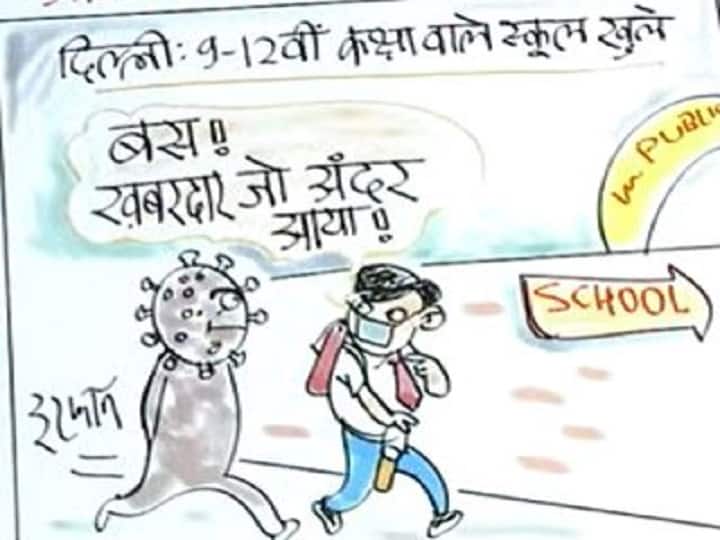 दिल्ली: 9-12वीं कक्षा वाले स्कूल खुले
बस!!
ख़बरदार जो अंदर
आया!!
PUBLIC
SCHOOL
इरफ़ान